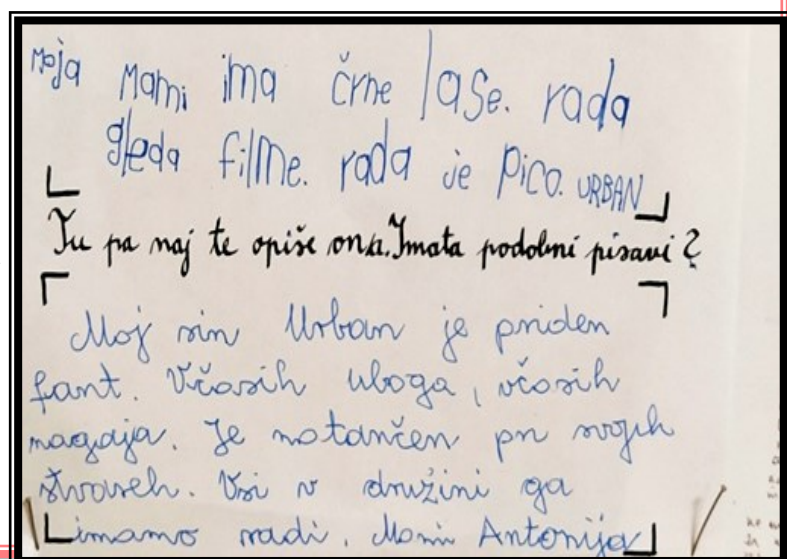 Moja Mami ima črne lase. rada
gleda filme. rada je Pico. URBAN
Tu pa naj te opiše ona. Imata podobni pisavi?
Moj sin Urban je priden
fant. Včasih uboga, včasih
nagaja. Je natančen pri svojih
stvareh. Vsi v družini ga
imamo radi. Mami Antonija